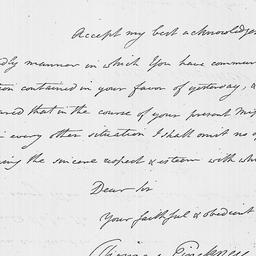 Accept my best acknowledg
dly manner in which You have commun
tion contained in your favor of yesterday, &
ured that in the course of your present Mis
in every other situation I shall omit no o
ing the sincere respect & esteem with wh
Dear Sir
Your faithful & obedient
Thomas Pinckney